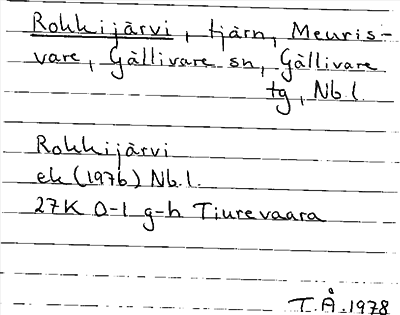 Rokkijärvi, tjärn, Meuris-
vare, Gällivare sn, Gällivare
tg, Nb.l.
Rokkijärvi
ek (1976) Nb.l.
27K 0-1 g-h Tiurevaara
T.Å. 1978